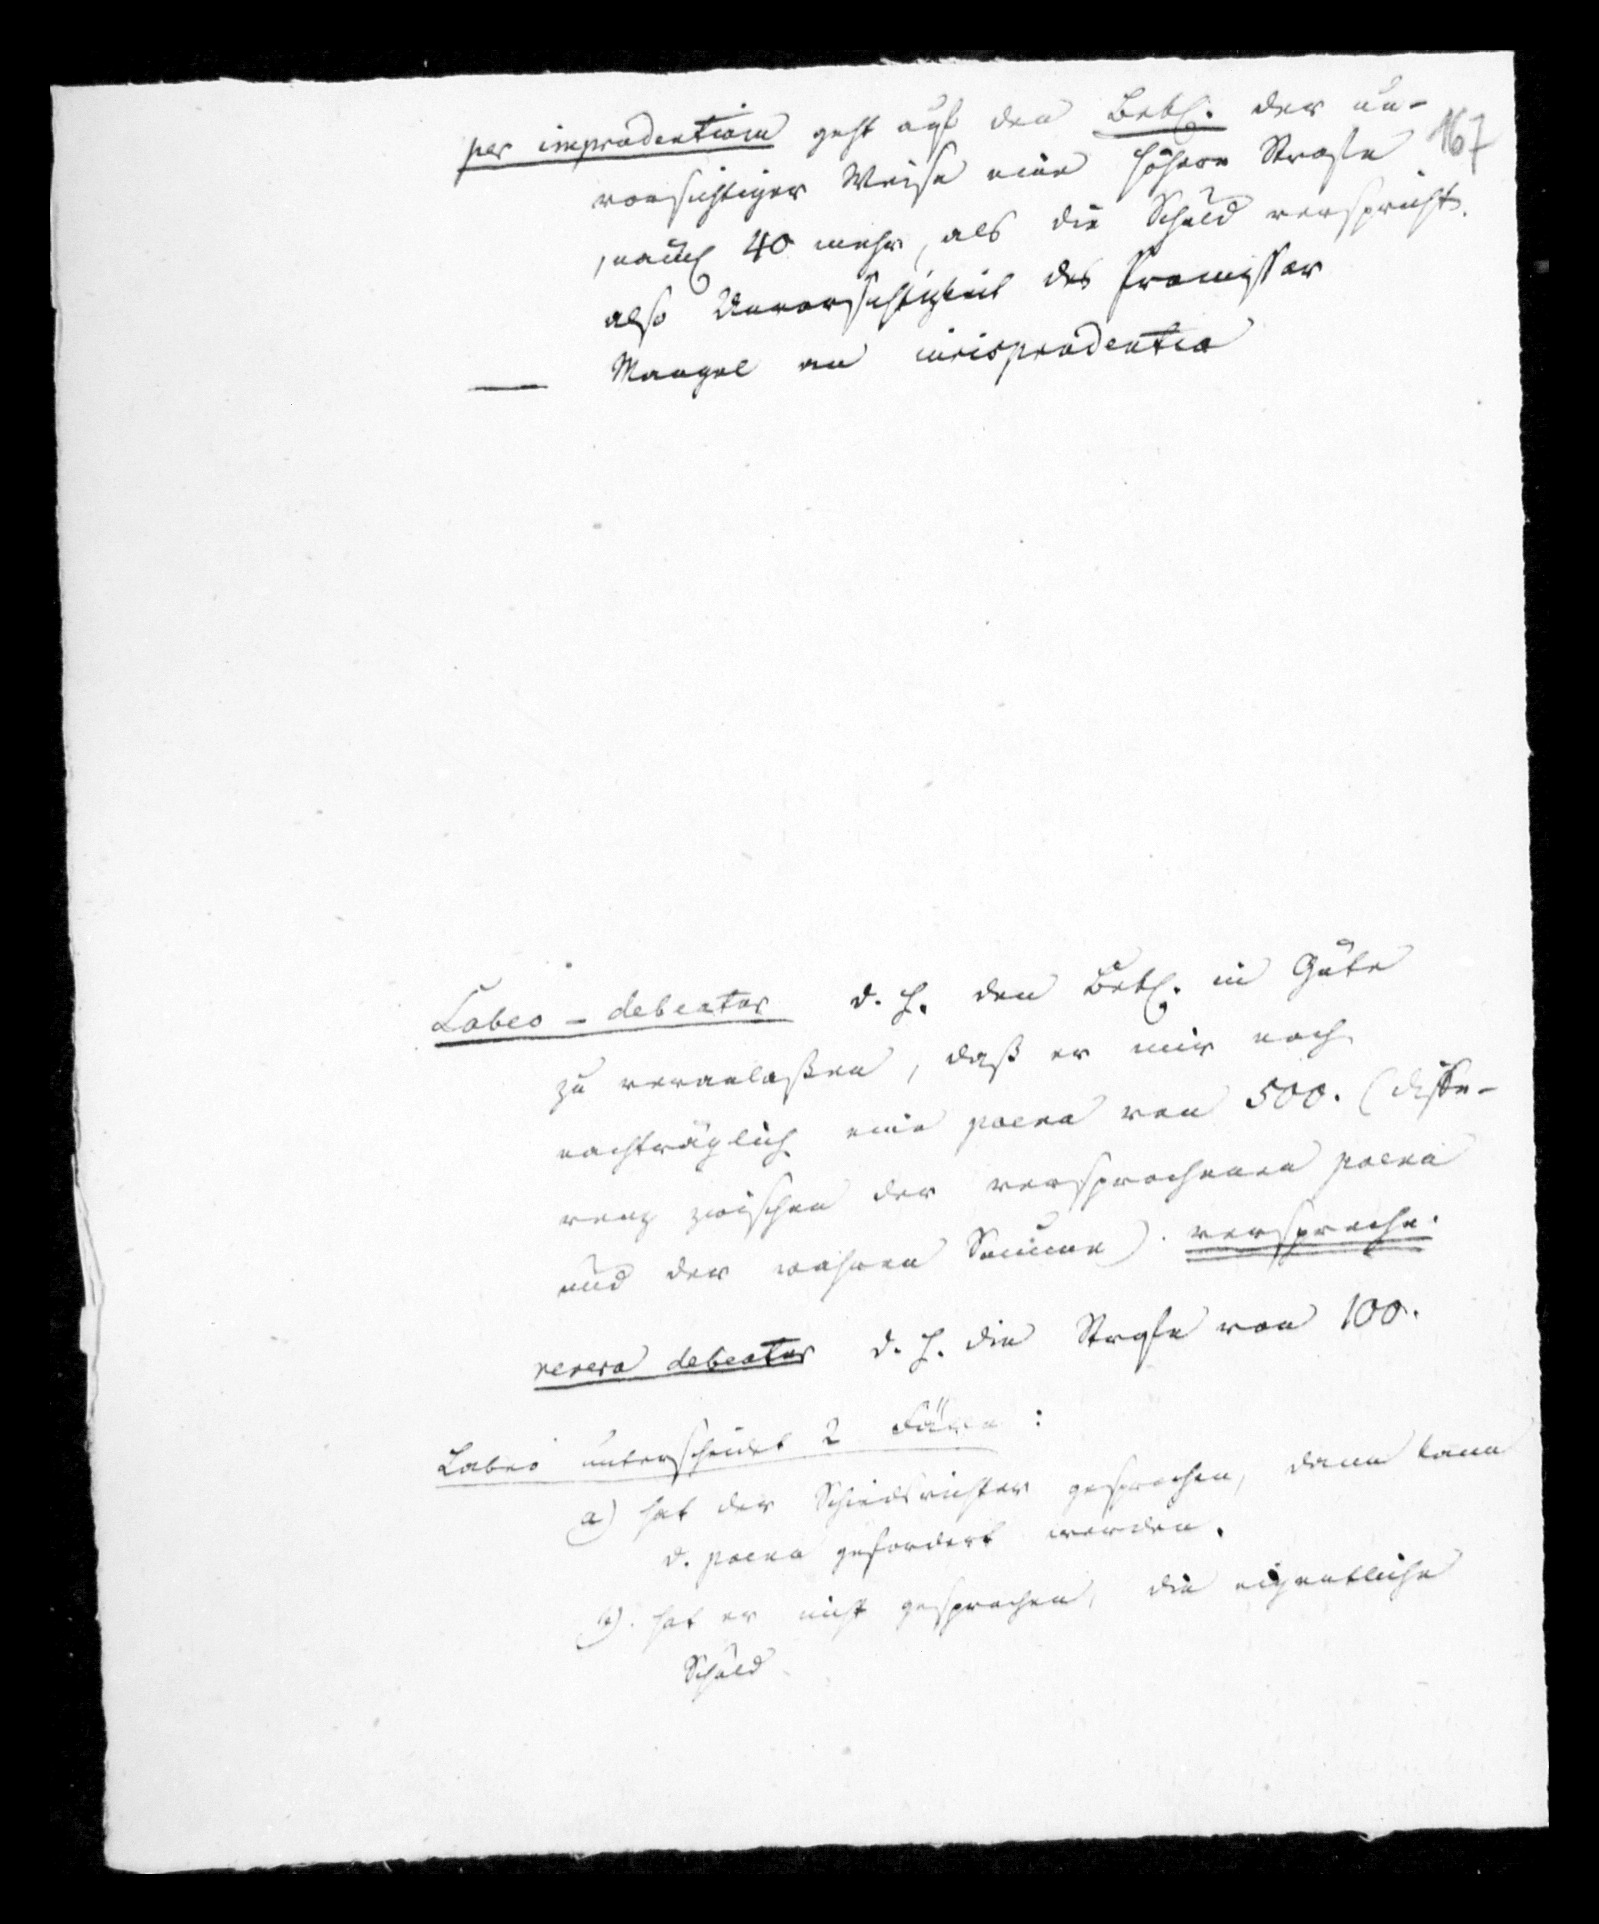 per imprudentiam geht auf den Bekl. der un-
167
vorsichtiger Weise eine höhere Strafe
, nämlich 40 mehr, als die Schuld verspricht.
also Unvorsichtigkeit des Promissor
— Mangel an iurisprudentia
Labeo - debeatur d. h. den Bekl. in Güte
zu veranlaßen, daß er mir noch
nachträglich eine poena von 500. (Diffe-
renz zwischen der versprochenen poena
und der wahren Summe) verspreche.
revera debeatur d. h. die Strafe von 100.
Labeo unterscheidet 2 Fälle:
a) hat der Schiedsrichter gesprochen, dann kann
d. poena gefordert werden.
b). hat er nicht gesprochen, die eigentliche
Schuld